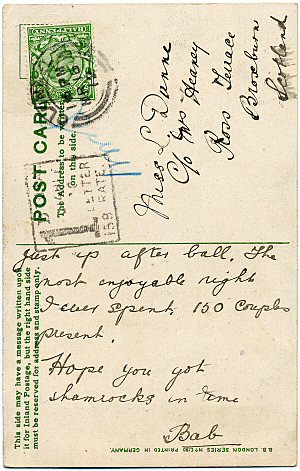 POST CARD
The Address to be written
on this side.
Miss L Dunne
c/o Mrs Heaney
Ross Terrace
Broxburn
Scotland
LETTER
RATE
This side may have a message written upon
it for Inland Postage, but the right hand side
must be reserved for address and stamp only.
Just up after ball. The
most enjoyable night
I ever spent. 150 couples
present.
Hope you got
shamrocks in time
Bab
B.B. LONDON SERIES
PRINTED IN GERMANY.